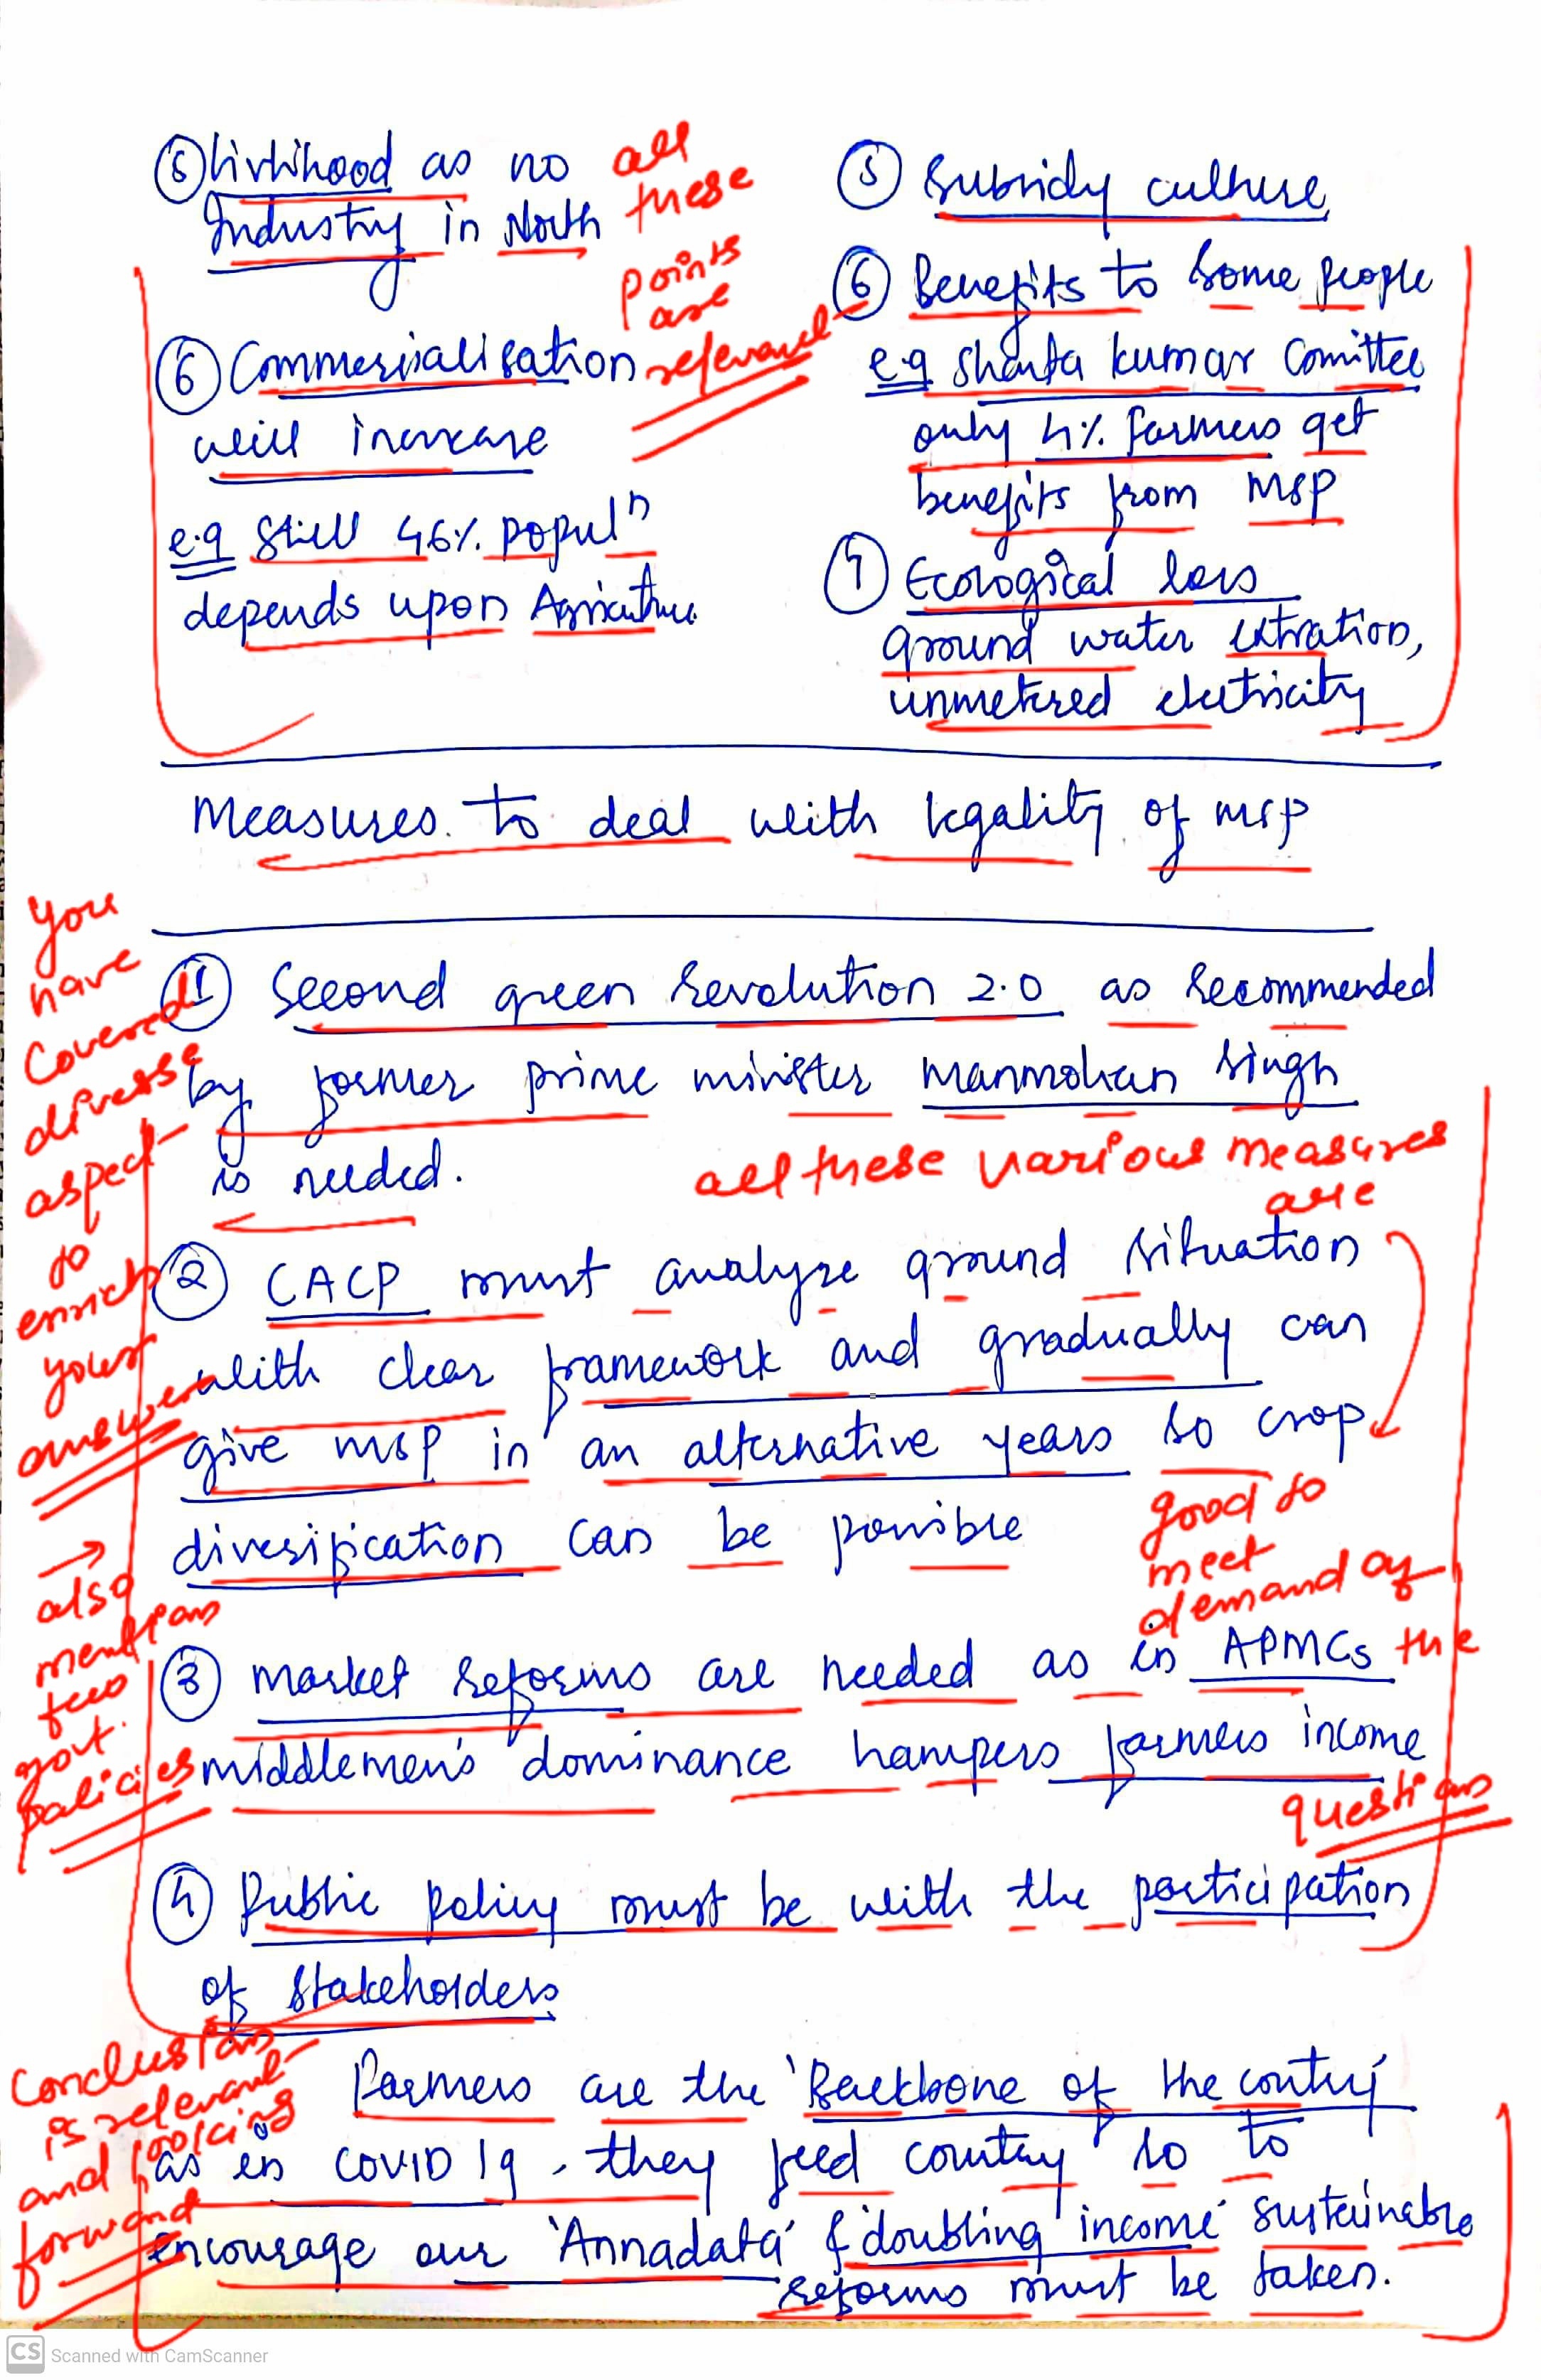 ⑤ livlihood as no
Industry in North
⑥ Commercialisation
will increase
e.g still 46% populⁿ
depends upon Agriculture
all
these
points
are
relevant
⑤ Subsidy culture
⑥ Benefits to some people
e.g Shanta kumar Comittee
only 4% farmers get
benefits from MSP
⑦ Ecological loss
ground water extration,
unmetered electricity
Measures to deal with legality of MSP
You
have
Covered
diverse
aspect
to
enrich
your
answer
① Second green revolution 2.0 as recommended
by former prime minister manmohan singh
is needed.
all these various measures
are
② CACP must analyze ground situation
with clear framework and gradually can
give MSP in an alternative years so crop
diversification can be possible
good to
meet
demand of
the
question
→
also
mention
few
govt.
policies
③ Market reforms are needed as in APMCs
middlemen's dominance hampers farmers income
④ Public policy must be with the participation
of stakeholders
Conclusion
is relevant
and looking
forward
Farmers are the 'Backbone of the contry'
as in COVID 19, they feed country so to
encourage our 'Annadata' & 'doubling income' sustainable
reforms must be taken.
CS Scanned with CamScanner